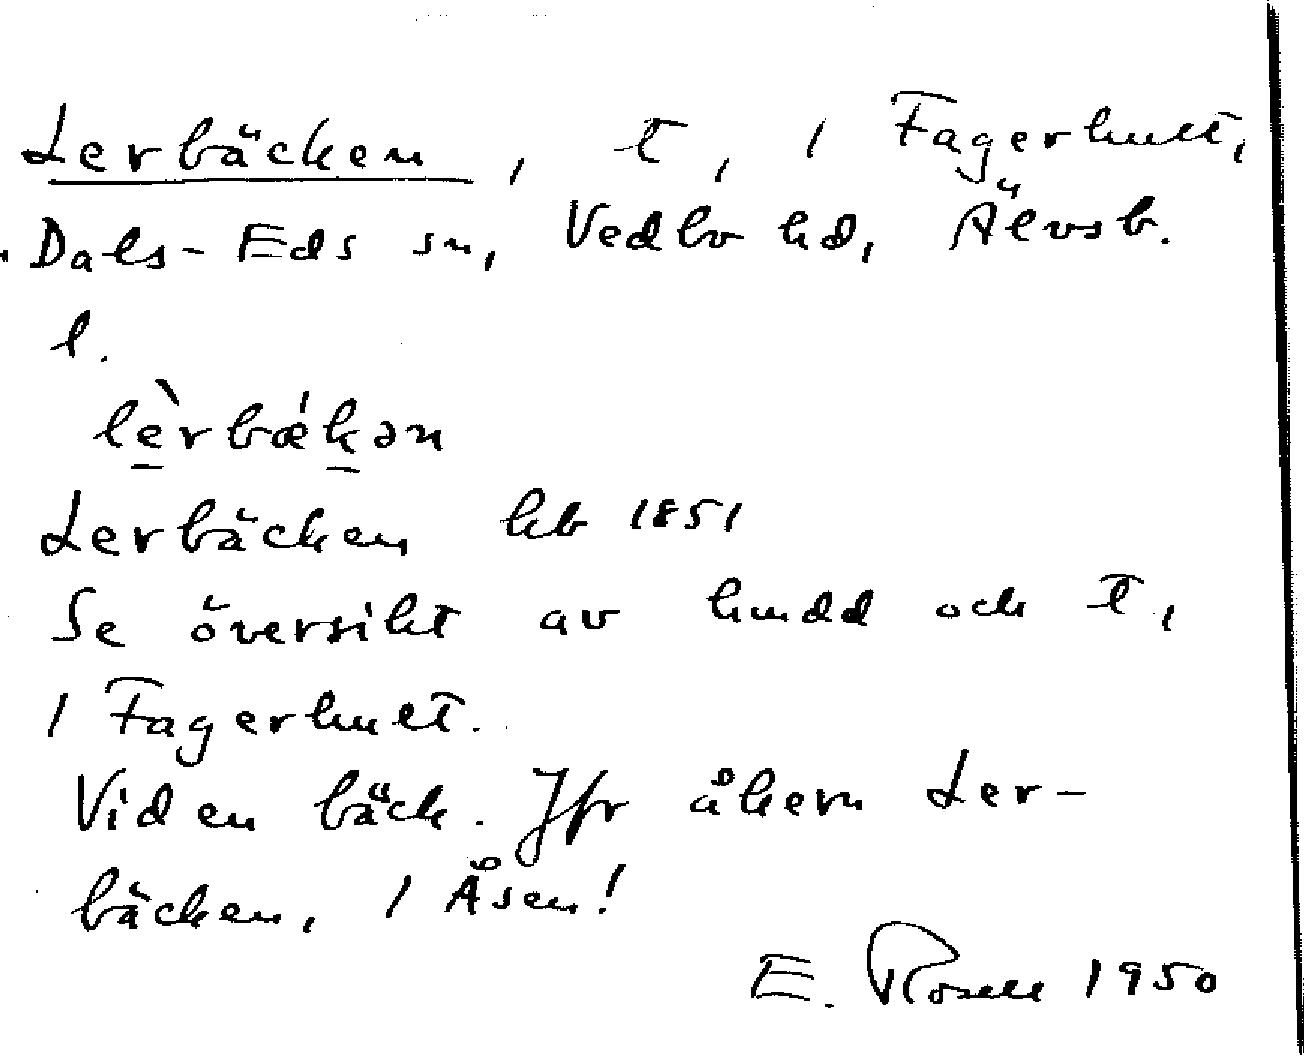 Lerbäcken, t, 1 Fagerhult,
Dals-Eds sn, Vedbo hd, Älvsb.
l.
lèrbǽkən
Lerbäcken hb 1851
Se översikt av hmdd och t,
1 Fagerhult.
Vid en bäck. Jfr åkern Ler-
bäcken, 1 Åsen!
E. Rosell 1950